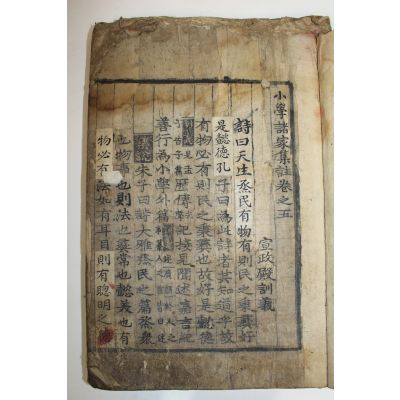 小學諸家集註卷之五
宣政殿訓義
詩曰天生烝民有物有則民之秉彝好
是懿德孔子曰爲此詩者其知道乎故
有物必有則民之秉彝也故好是懿德
歷傳記接見聞述嘉言紀
善行爲小學外篇
朱子曰詩大雅烝民之篇烝衆
也物事也則法也彝常也懿美也有
物必有法如有耳目則有聰明之德